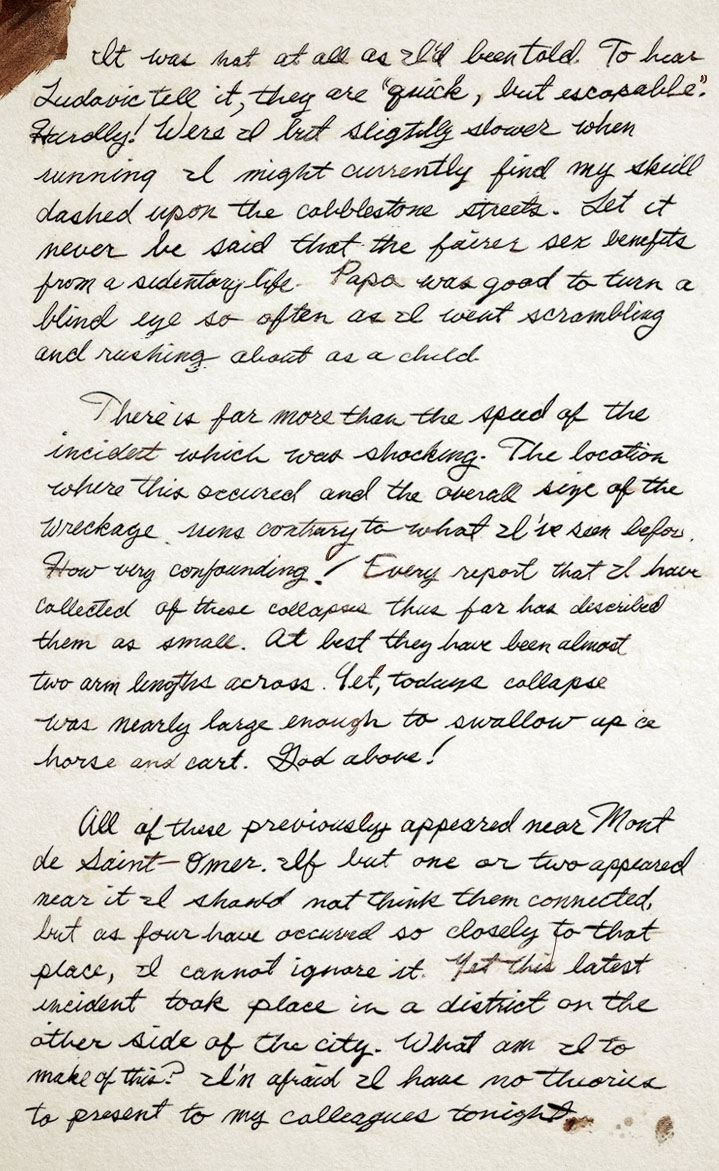 It was not at all as I'd been told. To hear
Ludovic tell it, they are "quick, but escapable".
Hardly! Were I but sligtly slower when
running I might currently find my skull
dashed upon the cobblestone streets. Let it
never be said that the fairer sex benefits
from a sidentary life. Papa was good to turn a
blind eye so often as I went scrambling
and rushing about as a child.
There is far more than the speed of the
incident which was shocking. The location
where this occured and the overall size of the
wreckage runs contrary to what I've seen before.
How very confounding! Every report that I have
collected of these collapses thus far has described
them as small. At best they have been almost
two arm lengths across. Yet, todays collapse
was nearly large enough to swallow up a
horse and cart. God above!
All of these previously appeared near Mont
de Saint-Omer. If but one or two appeared
near it I should not think them connected,
but as four have occurred so closely to that
place, I cannot ignore it. Yet this latest
incident took place in a district on the
other side of the city. What am I to
make of this? I'm afraid I have no theories
to present to my colleagues tonight.